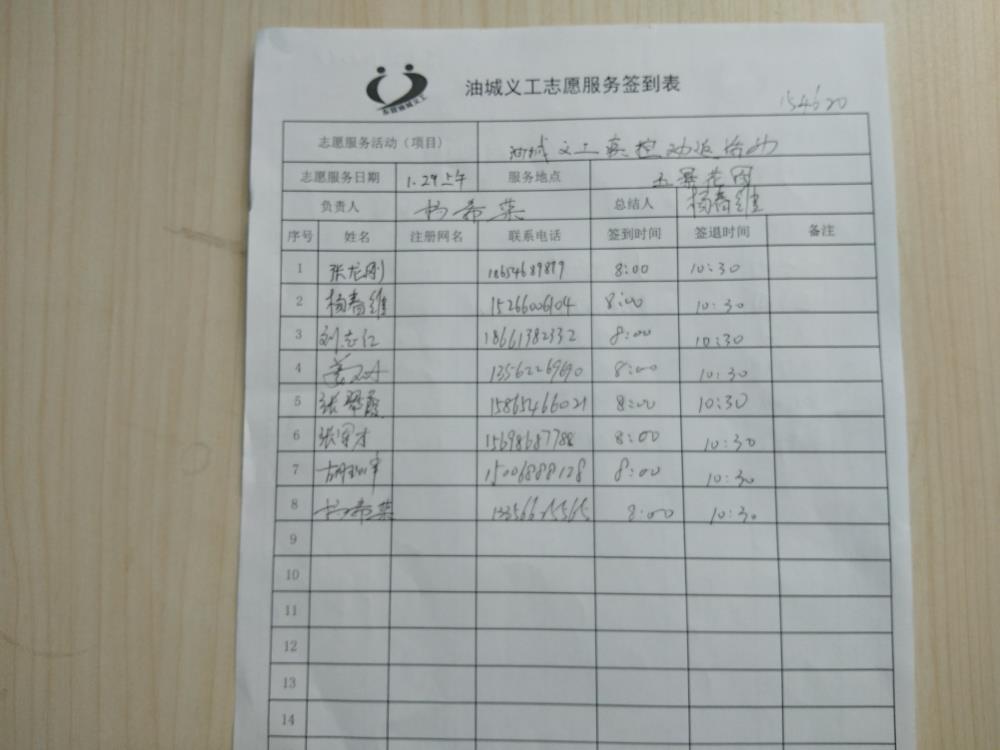 东营油城义工
油城义工志愿服务签到表
154620
志愿服务活动（项目） 油城义工真控劝返活动
志愿服务日期 1.29上午 服务地点
负责人 杨希荣 总结人 杨春维
序号 姓名 注册网名 联系电话 签到时间 签退时间 备注
1 张龙刚 18654689879 8:00 10:30
2 杨春维 15266006104 8:00 10:30
3 刘志仁 18661382332 8:00 10:30
4 13562269690 8:00 10:30
5 张翠霞 15865466021 8:00 10:30
6 张军才 15698687788 8:00 10:30
7 15006888128 8:00 10:30
8 杨希荣 8:00 10:30
9
10
11
12
13
14